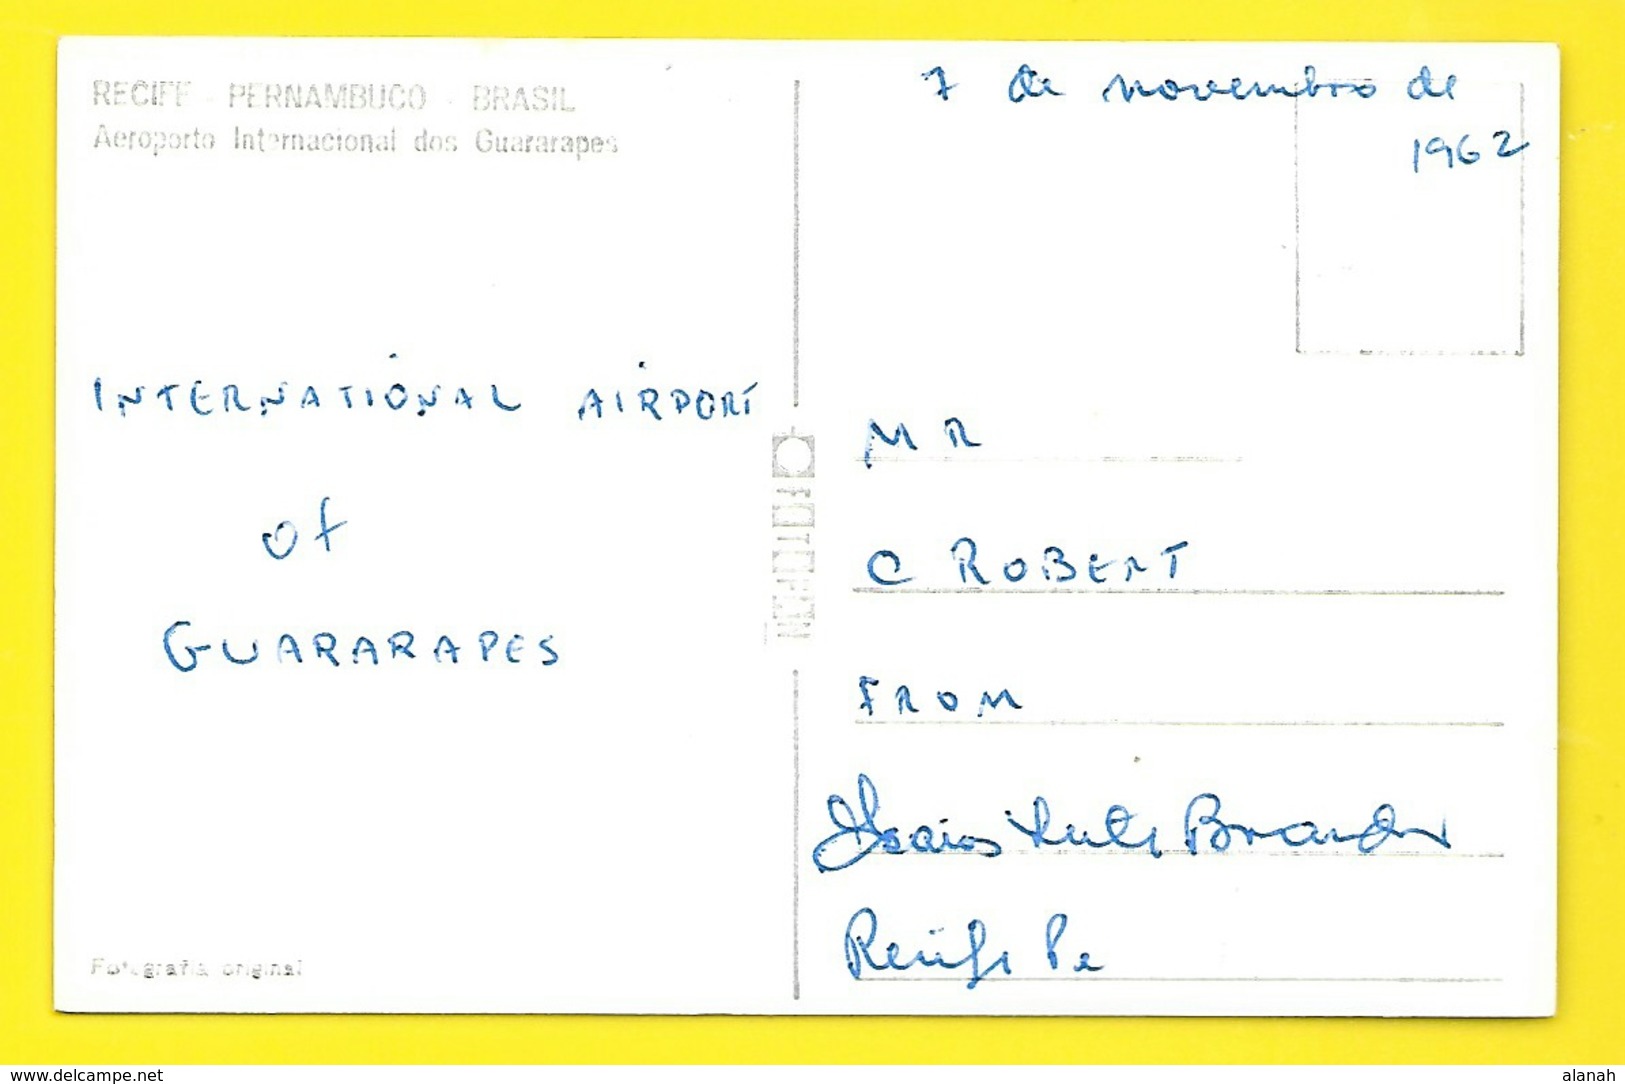 RECIFE - PERNAMBUCO - BRASIL
Aeroporto Internacional dos Guararapes
7 de novembro de
1962
INTERNATIONAL AIRPORT
of
GUARARAPES
FOTOPAN
MR
C ROBERT
FROM
Recife Pe
Fotografia original
www.delcampe.net
alanah